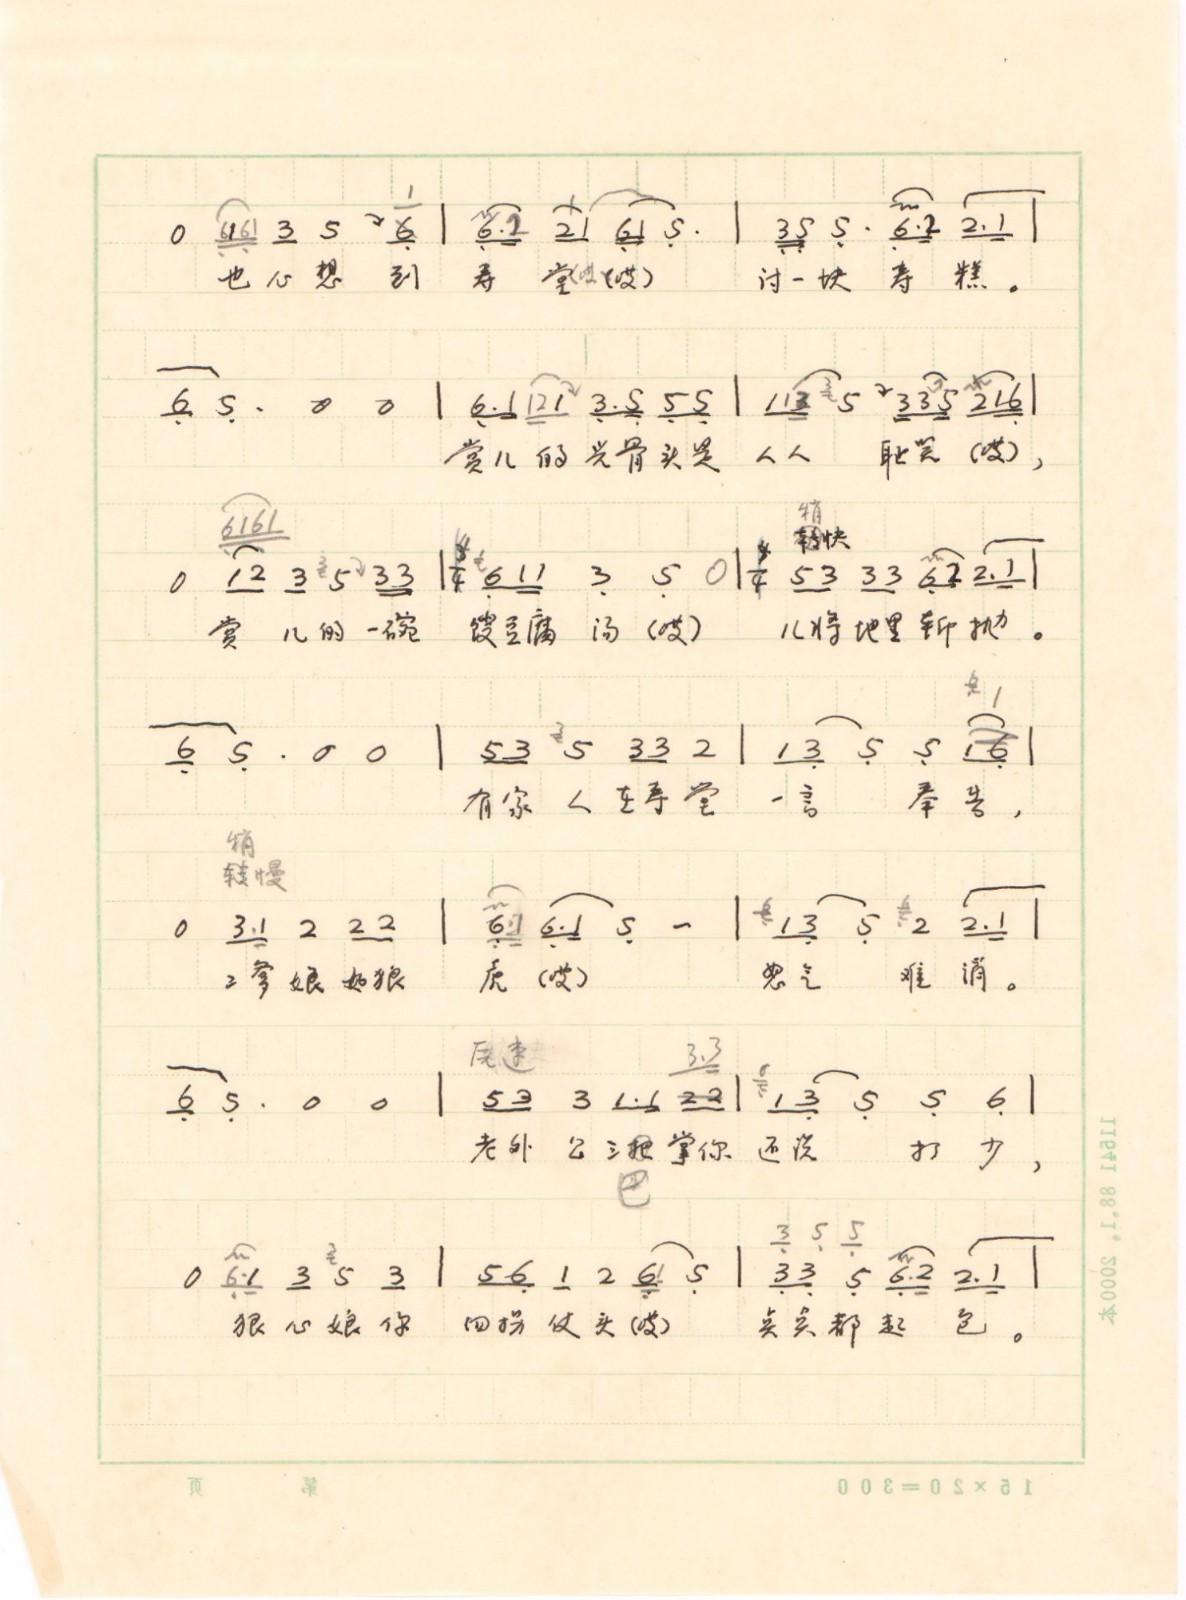 0 6161 3 5 6 | 6·2 21 61 5· | 35 5· 6·2 2·1 |
也心想到 寿堂(哎)(哎) 讨一块寿糕。
6 5· 0 0 | 6·1 121 3·5 55 | 113 5 335 216 |
赏儿的光骨头是 人人 耻笑(哎),
6161
稍
转快
0 12 3 5 33 | 4/4 611 3 5 0 | 4/4 53 33 62 2·1 |
赏儿的一碗 馊豆腐汤(哎) 儿将地里 抛。
1
6 5· 0 0 | 53 5 33 2 | 13 5 5 16 |
有家人在寿堂 一言 奉告,
稍
转慢
0 3·1 2 22 | 6·1 6·1 5 - | 13 5 2 2·1 |
二爹娘如狼 虎(哎) 怒气 难消。
尺速 3·3
6 5· 0 0 | 53 3 1·1 22 | 13 5 5 6 |
老外公三把掌你 还说 打少,
巴
3 5 5
0 6·1 3 5 3 | 56 1 2 61 5 | 33 5 6·2 2·1 |
狠心娘你 四拐仗头(哎) 头头都起包。
11541 88.1. 2000本
第 页
15×20=300